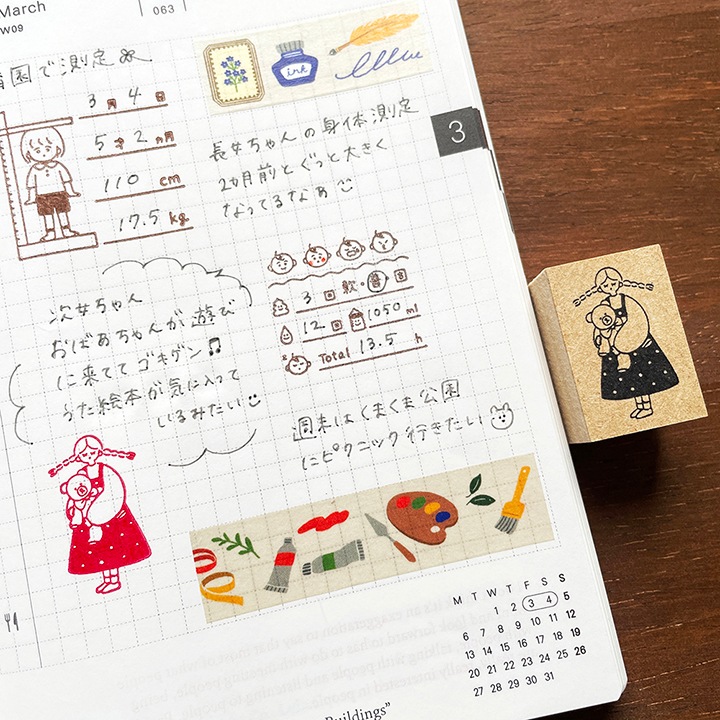 March
W09
063
園で測定
3月4日
5才2ヵ月
110 cm
17.5 kg
ink
3
長女ちゃんの身体測定
2カ月前とぐっと大きく
なってるなぁ
次女ちゃん
おばあちゃんが遊び
に来ててゴキゲン♫
うた絵本が気に入って
いるみたい
3回 軟・普・固
12回 1050 ml
Total 13.5 h
週末はくまくま公園
にピクニック行きたい
M T W T F S S
1 2 3 4 5
6 7 8 9 10 11 12
13 14 15 16 17 18 19
20 21 22 23 24 25 26
27 28 29 30 31
Buildings”